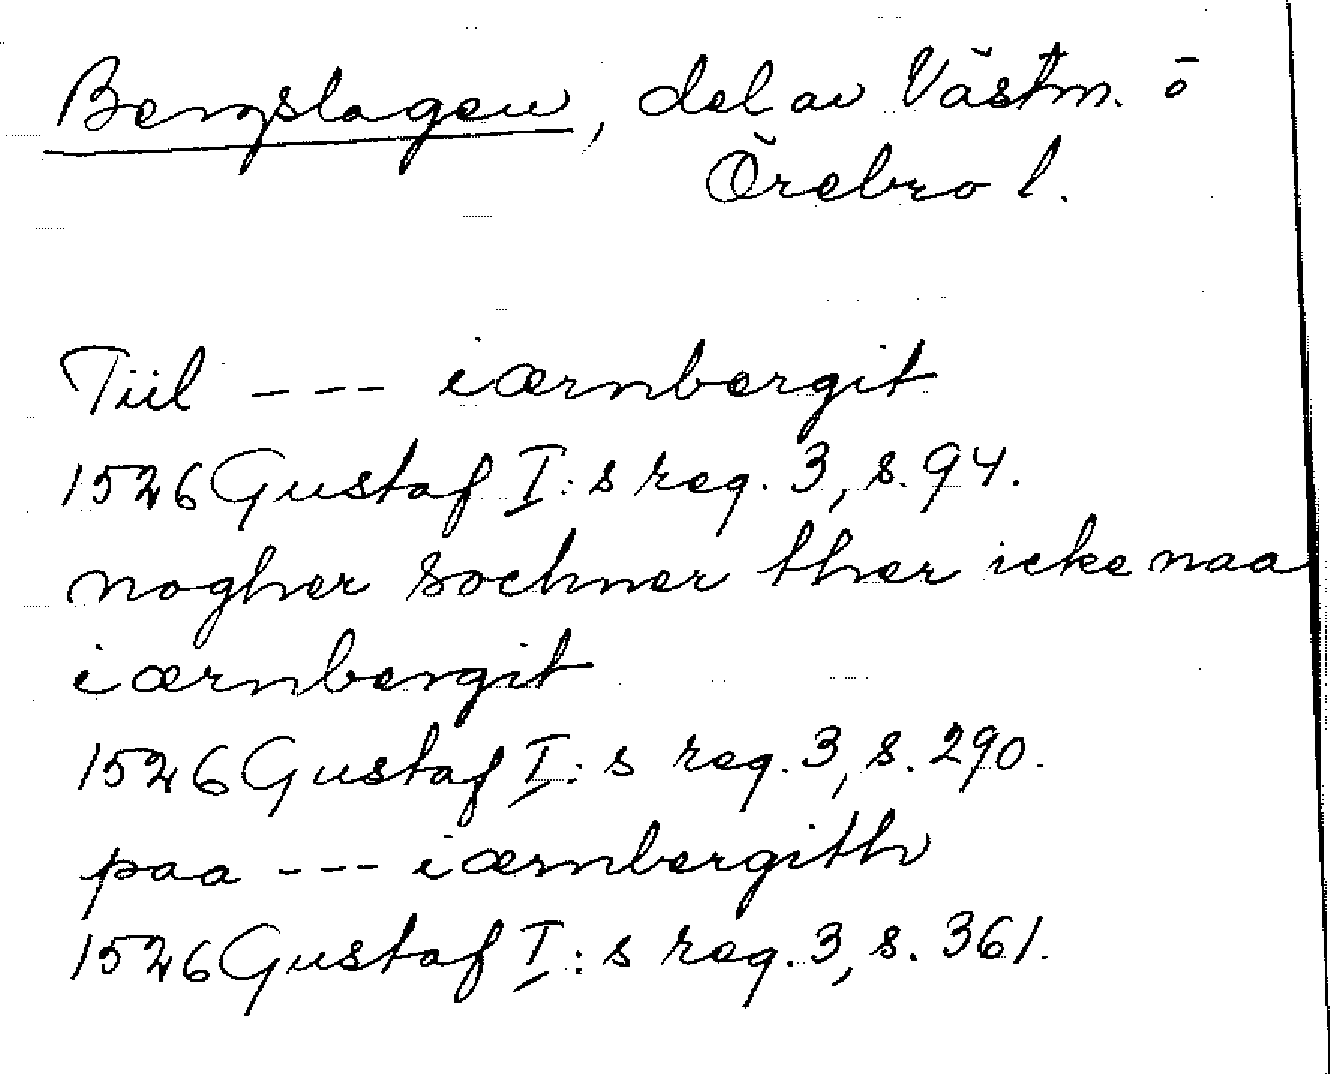 Bergslagen, del av Västm. o
Örebro l.
Tiil --- iærnbergit
1526 Gustaf I:s reg. 3, s. 94.
nogher sochner ther icke naa
iærnbergit
1526 Gustaf I:s reg. 3, s. 290.
paa --- iærnbergith
1526 Gustaf I:s reg. 3, s. 361.